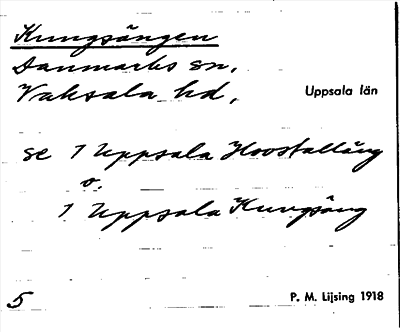 Kungsängen
Danmarks sn.
Vaksala hd,
Uppsala län
se 1 Uppsala Hovstalläng
o.
1 Uppsala Kungsäng
5
P. M. Lijsing 1918